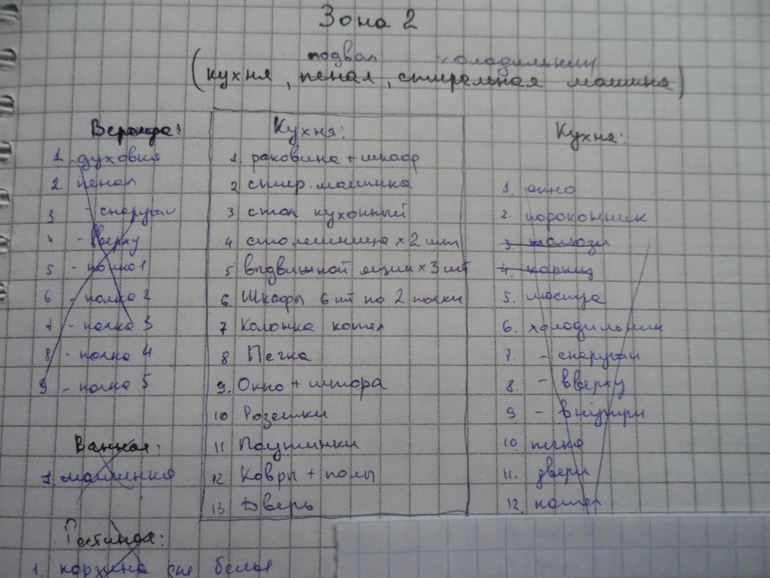 Зона 2
подвал холодильник
(кухня, пенал, стиральная машина)
Веранда:
1. духовка
2. пенал
3 - снаружи
4 - вверху
5 - полка 1
6 - полка 2
7 - полка 3
8 - полка 4
9 - полка 5
Ванная:
1. машинка
Гостиная:
1. корзина для белья
Кухня:
1. раковина + шкаф
2. стир. машинка
3 стол кухонный
4 столешница х 2 шт
5 выдвижной ящик х 3 шт
6. Шкафы 6 шт по 2 полки
7 Колонка котел
8 Печка
9. Окно + штора
10 Розетки
11 Паутинки
12 Ковры + полы
13 Дверь
Кухня:
1. окно
2. подоконник
3. жалюзи
4. карниз
5. люстра
6. холодильник
7. - снаружи
8. - вверху
9 - внутри
10. печка
11. двери
12. котел